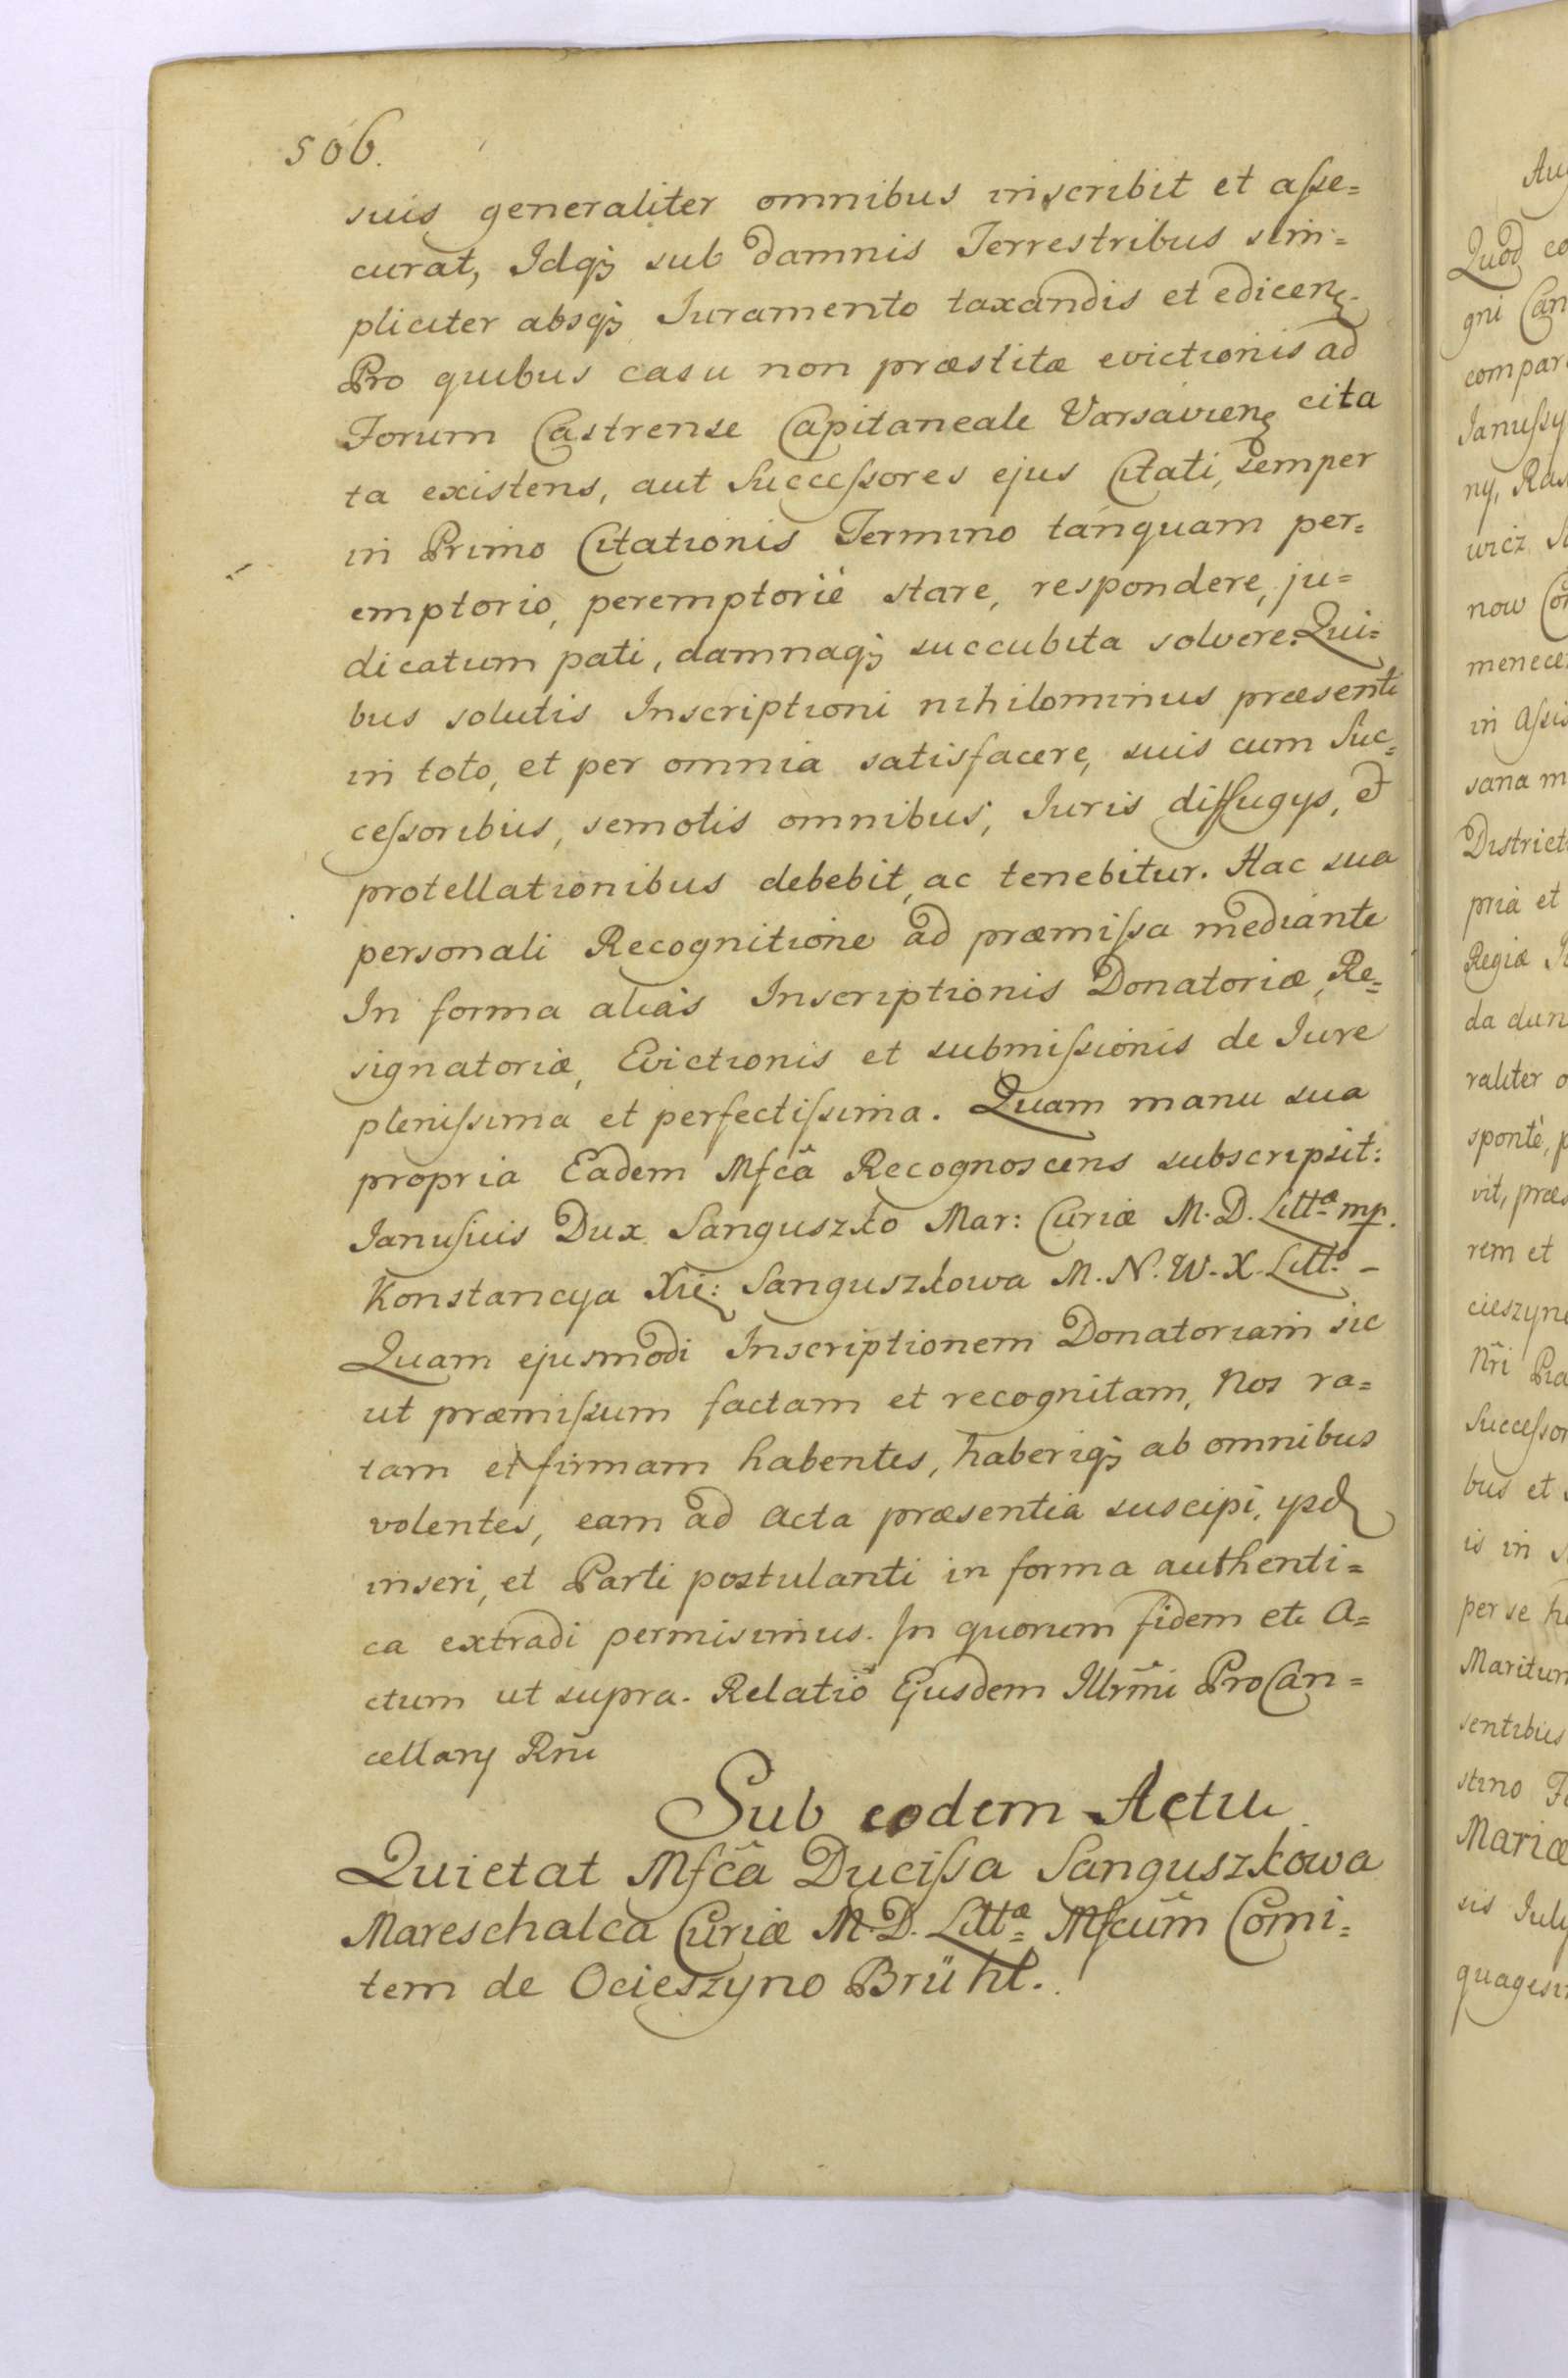 506.
suis generaliter omnibus inscribit et aſse=
curat, Idqꝫ sub damnis Terrestribus sim=
pliciter absqꝫ Iuramento taxandis et edicen.
Pro quibus casu non præstitæ evictionis ad
Forum Castrense Capitaneale Varsavien cita
ta existens, aut Succeſsores ejus Citati, semper
in Primo Citationis Termino tanquam per=
emptorio, peremptoriè stare, respondere, ju=
dicatum pati, damnaqꝫ succubita solvere. Qui=
bus solutis Inscriptioni nihilominus præsenti
in toto, et per omnia satisfacere, suis cum Suc=
ceſsoribus, semotis omnibus, Iuris diffugys, et
protellationibus debebit, ac tenebitur. Hac sua
personali Recognitione ad præmiſsa mediante
In forma aliàs Inscriptionis Donatoriæ, Re=
signatoriæ, Evictionis et submiſsionis de Iure
pleniſsima et perfectiſsima. Quam manu sua
propria Eadem Mfcã Recognoscens subscripsit:
Januſsius Dux Sanguszko Mar: Curiæ M. D. Littæ mp.
Konstancya Xię: Sanguszkowa M. N. W. X. Litto –
Quam ejusmodi Inscriptionem Donatoriam sic
ut præmiſsum factam et recognitam, Nos ra=
tam et firmam habentes, haberiqꝫ ab omnibus
volentes, eam ad Acta præsentia suscipi, ysdꝫ
inseri, et Parti postulanti in forma authenti=
ca extradi permisimus. In quorum fidem etc A=
ctum ut supra. Relatiõ Ejusdem Illrm̃i ProCan=
cellarij Rñi
Sub eodem Actu
Quietat Mfcã Duciſsa Sanguszkowa
Mareschalca Curiæ M. D. Littæ Mfcũm Comi=
tem de Ocieszyno Brühl.
Quod
gni
compar
Januſsy
ny,
wicz
now
menece
in Aſsis
sana m
District
pria et
Regiæ
da dun
raliter o
spontè, p
vit, præs
rem et
cieszyn
Nr̃i
Succeſsor
bus et
is in
per se
Maritum
sentibus
stino
Mariæ
sis July
quagesi